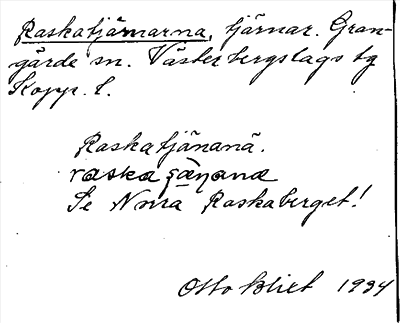 Raskatjärnarna, tjärnar. Gran-
gärde sn. Västerbergslags tg
Kopp. l.
Raskatjänanä.
raska
Se Norra Raskaberget!
Otto Blixt 1934